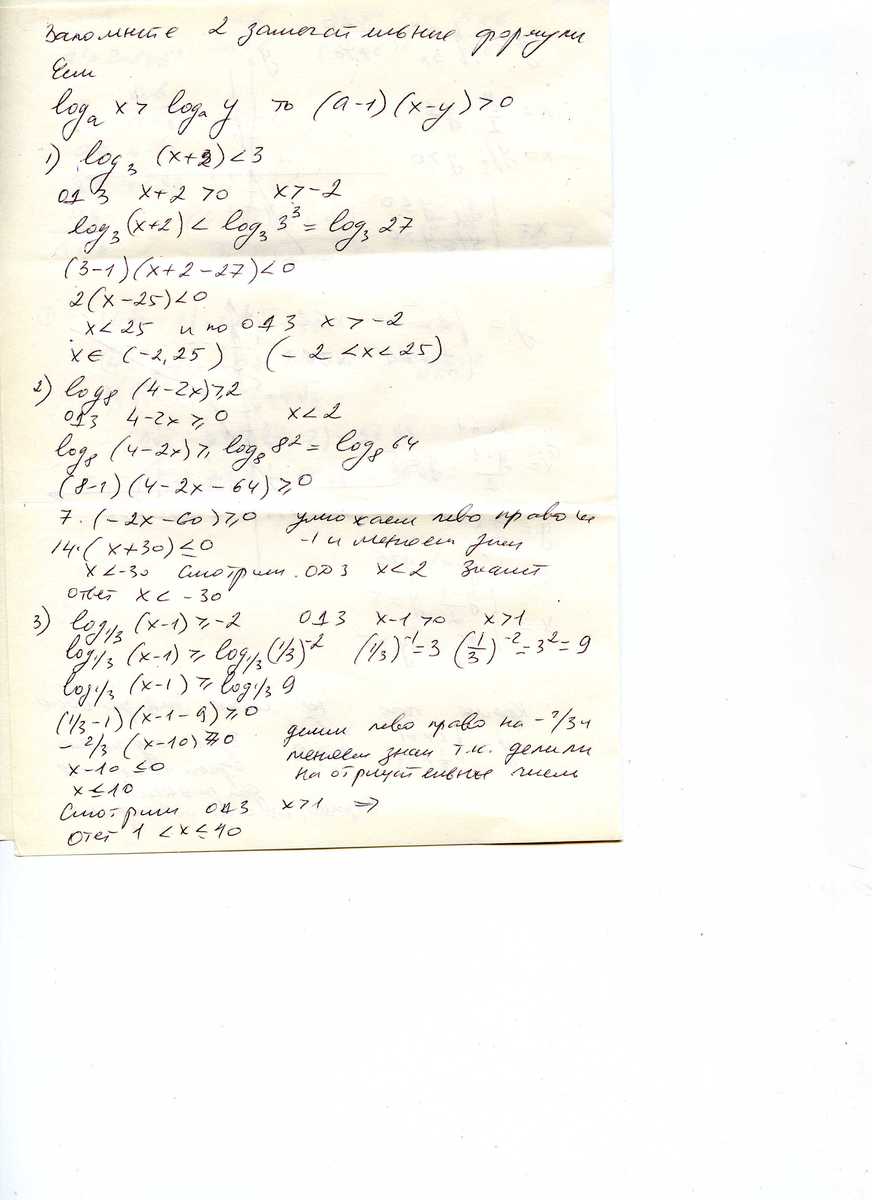 Запомните 2 замечательные формулы
Если
logₐ x > logₐ y то (a-1)(x-y)>0
1) log₃ (x+2)<3
ОДЗ x+2>0 x>-2
log₃(x+2) < log₃ 3³ = log₃ 27
(3-1)(x+2-27)<0
2(x-25)<0
x<25 и по ОДЗ x>-2
x∈ (-2,25) (-2<x<25)
2) log₈ (4-2x)≥2
ОДЗ 4-2x≥0 x<2
log₈ (4-2x)≥ log₈ 8² = log₈ 64
(8-1)(4-2x-64)≥0
7·(-2x-60)≥0 умножаем лево право на
14·(x+30)≤0 -1 и меняем знак
x<-30 Смотрим ОДЗ x<2 Значит
ответ x<-30
3) log₁/₃ (x-1)≥-2 ОДЗ x-1>0 x>1
log₁/₃ (x-1)≥ log₁/₃(1/3)⁻² (1/3)⁻¹=3 (1/3)⁻²=3²=9
log₁/₃ (x-1)≥ log₁/₃ 9
(1/3-1)(x-1-9)≥0
-2/3 (x-10)≥0 делим лево право на -2/3 и
x-10≤0 меняем знак т.к. делили
x≤10 на отрицательные числа
Смотрим ОДЗ x>1 ⇒
Ответ 1<x≤10